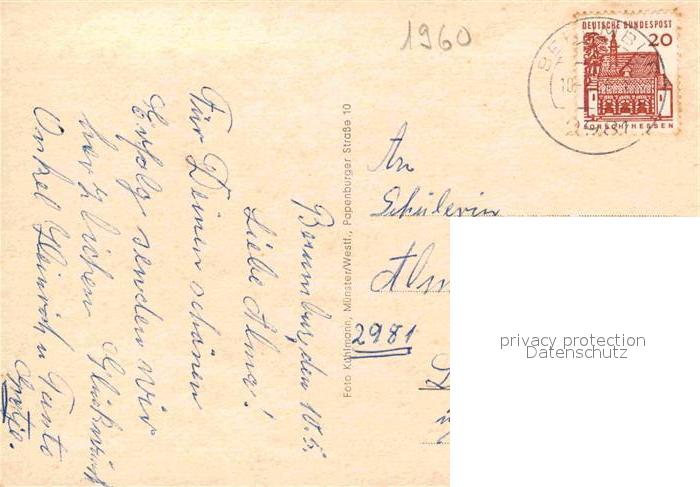 1960
DEUTSCHE BUNDESPOST
20
LORSCH/HESSEN
den 10.5.
Liebe Alma!
Für Deinen schönen
Erfolg senden wir
herzlichen Glückwunsch
Onkel Heinrich u Tante
Foto Kuhlmann, Münster/Westf., Papenburger Straße 10
An
Schülerin
2981
privacy protection
Datenschutz